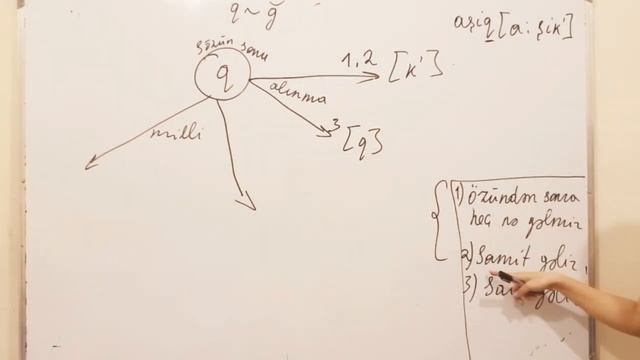 q ~ ğ
aşiq [a:şik']
sözün sonu
q
1,2
[k']
alınma
3
[q]
milli
1) özündən sonra
heç nə gəlmir
2) Samit gəlir,
3) Sai